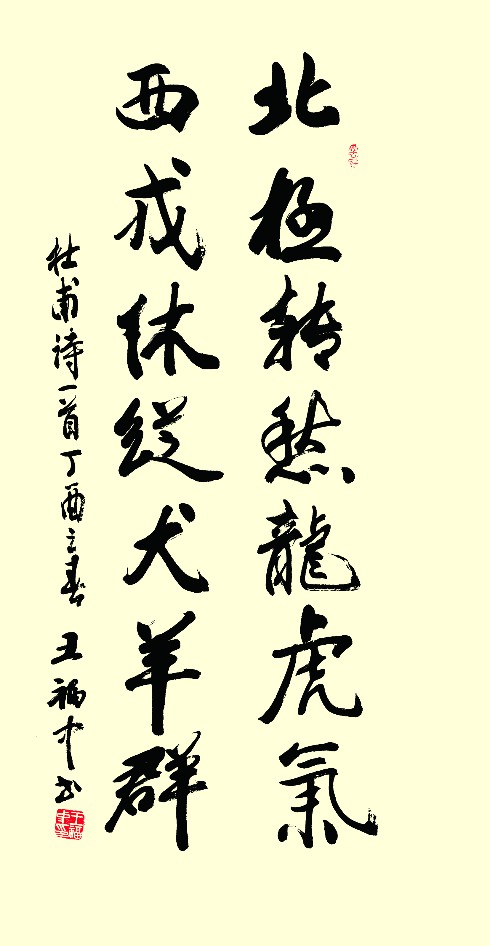 北極转愁龍虎氣
西戎休縱犬羊群
杜甫诗一首丁酉之春 王福中书